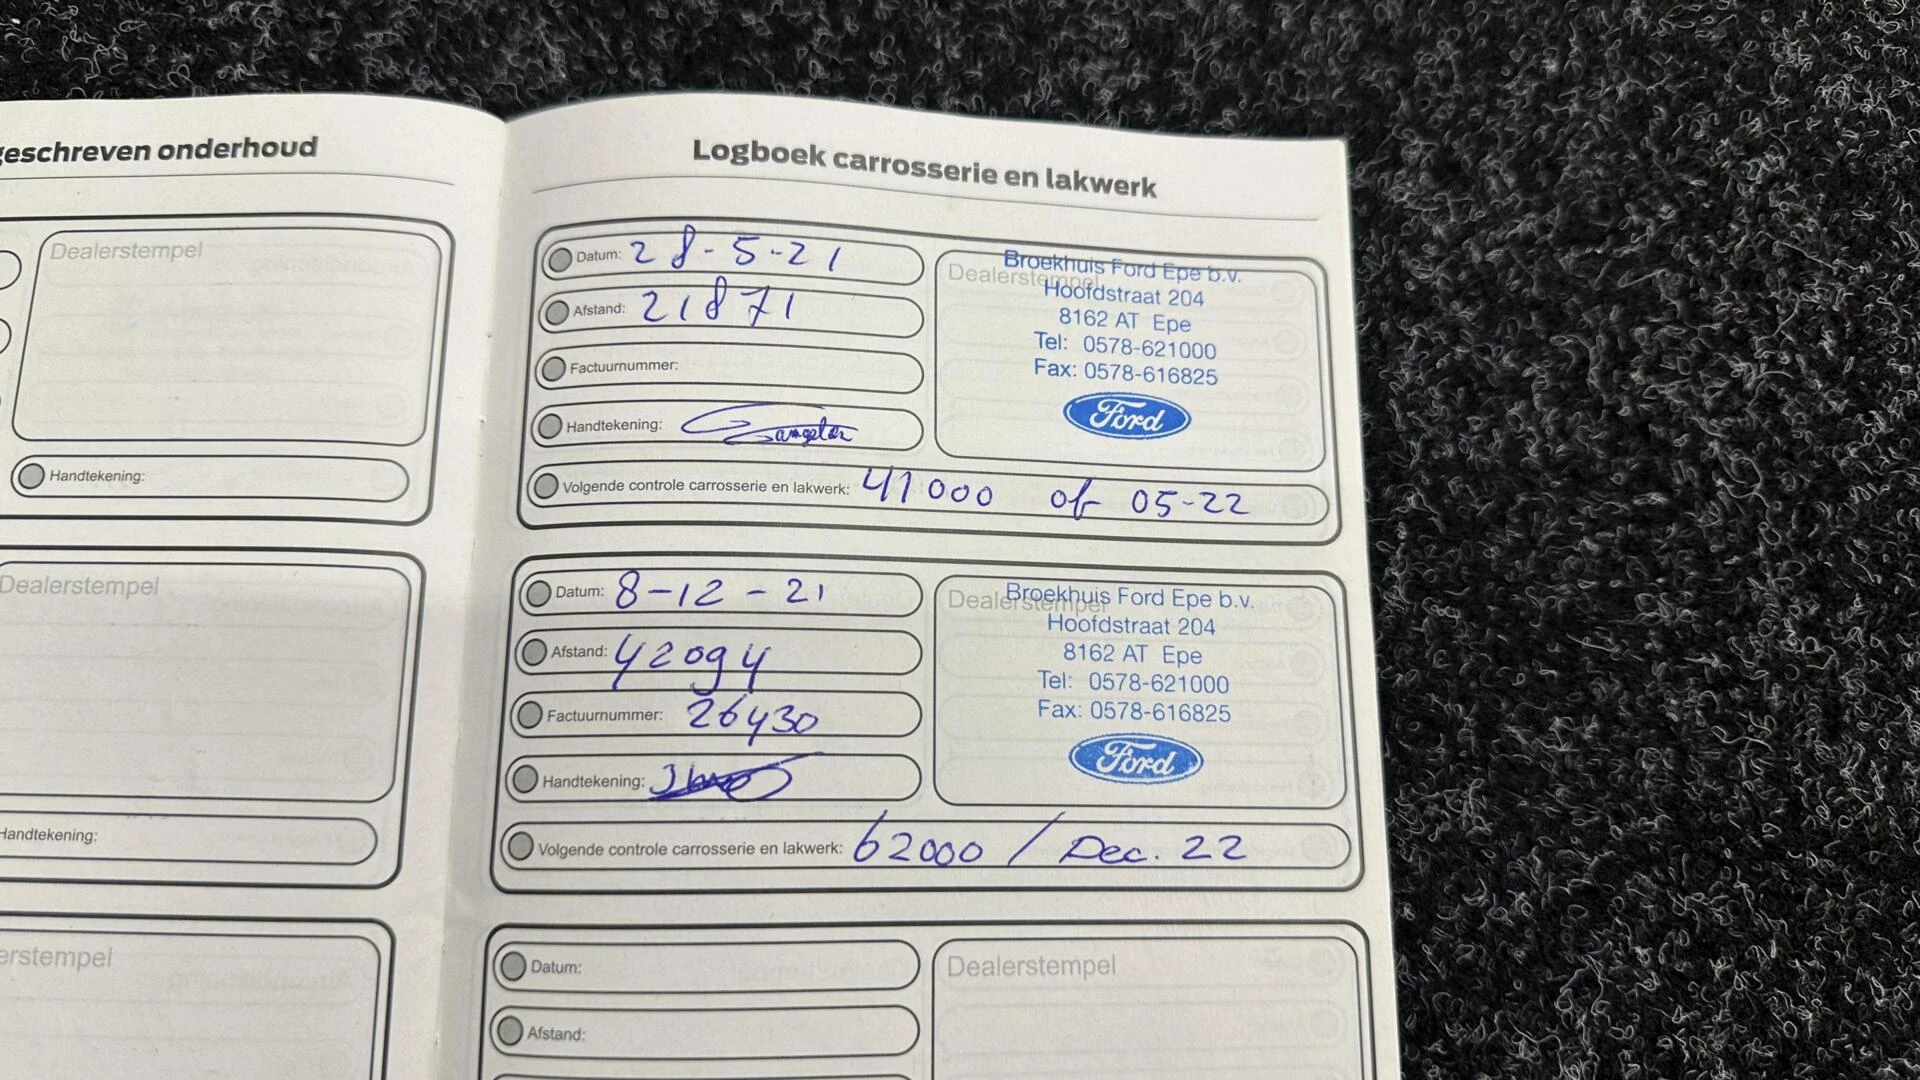 geschreven onderhoud
Dealerstempel
Handtekening:
Dealerstempel
Handtekening:
erstempel
Logboek carrosserie en lakwerk
Datum: 28-5-21
Afstand: 21871
Factuurnummer:
Handtekening:
Dealerstempel
Broekhuis Ford Epe b.v.
Hoofdstraat 204
8162 AT Epe
Tel: 0578-621000
Fax: 0578-616825
Ford
Volgende controle carrosserie en lakwerk: 41000 of 05-22
Datum: 8-12-21
Afstand: 42094
Factuurnummer: 26430
Handtekening:
Dealerstempel
Broekhuis Ford Epe b.v.
Hoofdstraat 204
8162 AT Epe
Tel: 0578-621000
Fax: 0578-616825
Ford
Volgende controle carrosserie en lakwerk: 62000 / Dec. 22
Datum:
Afstand:
Dealerstempel